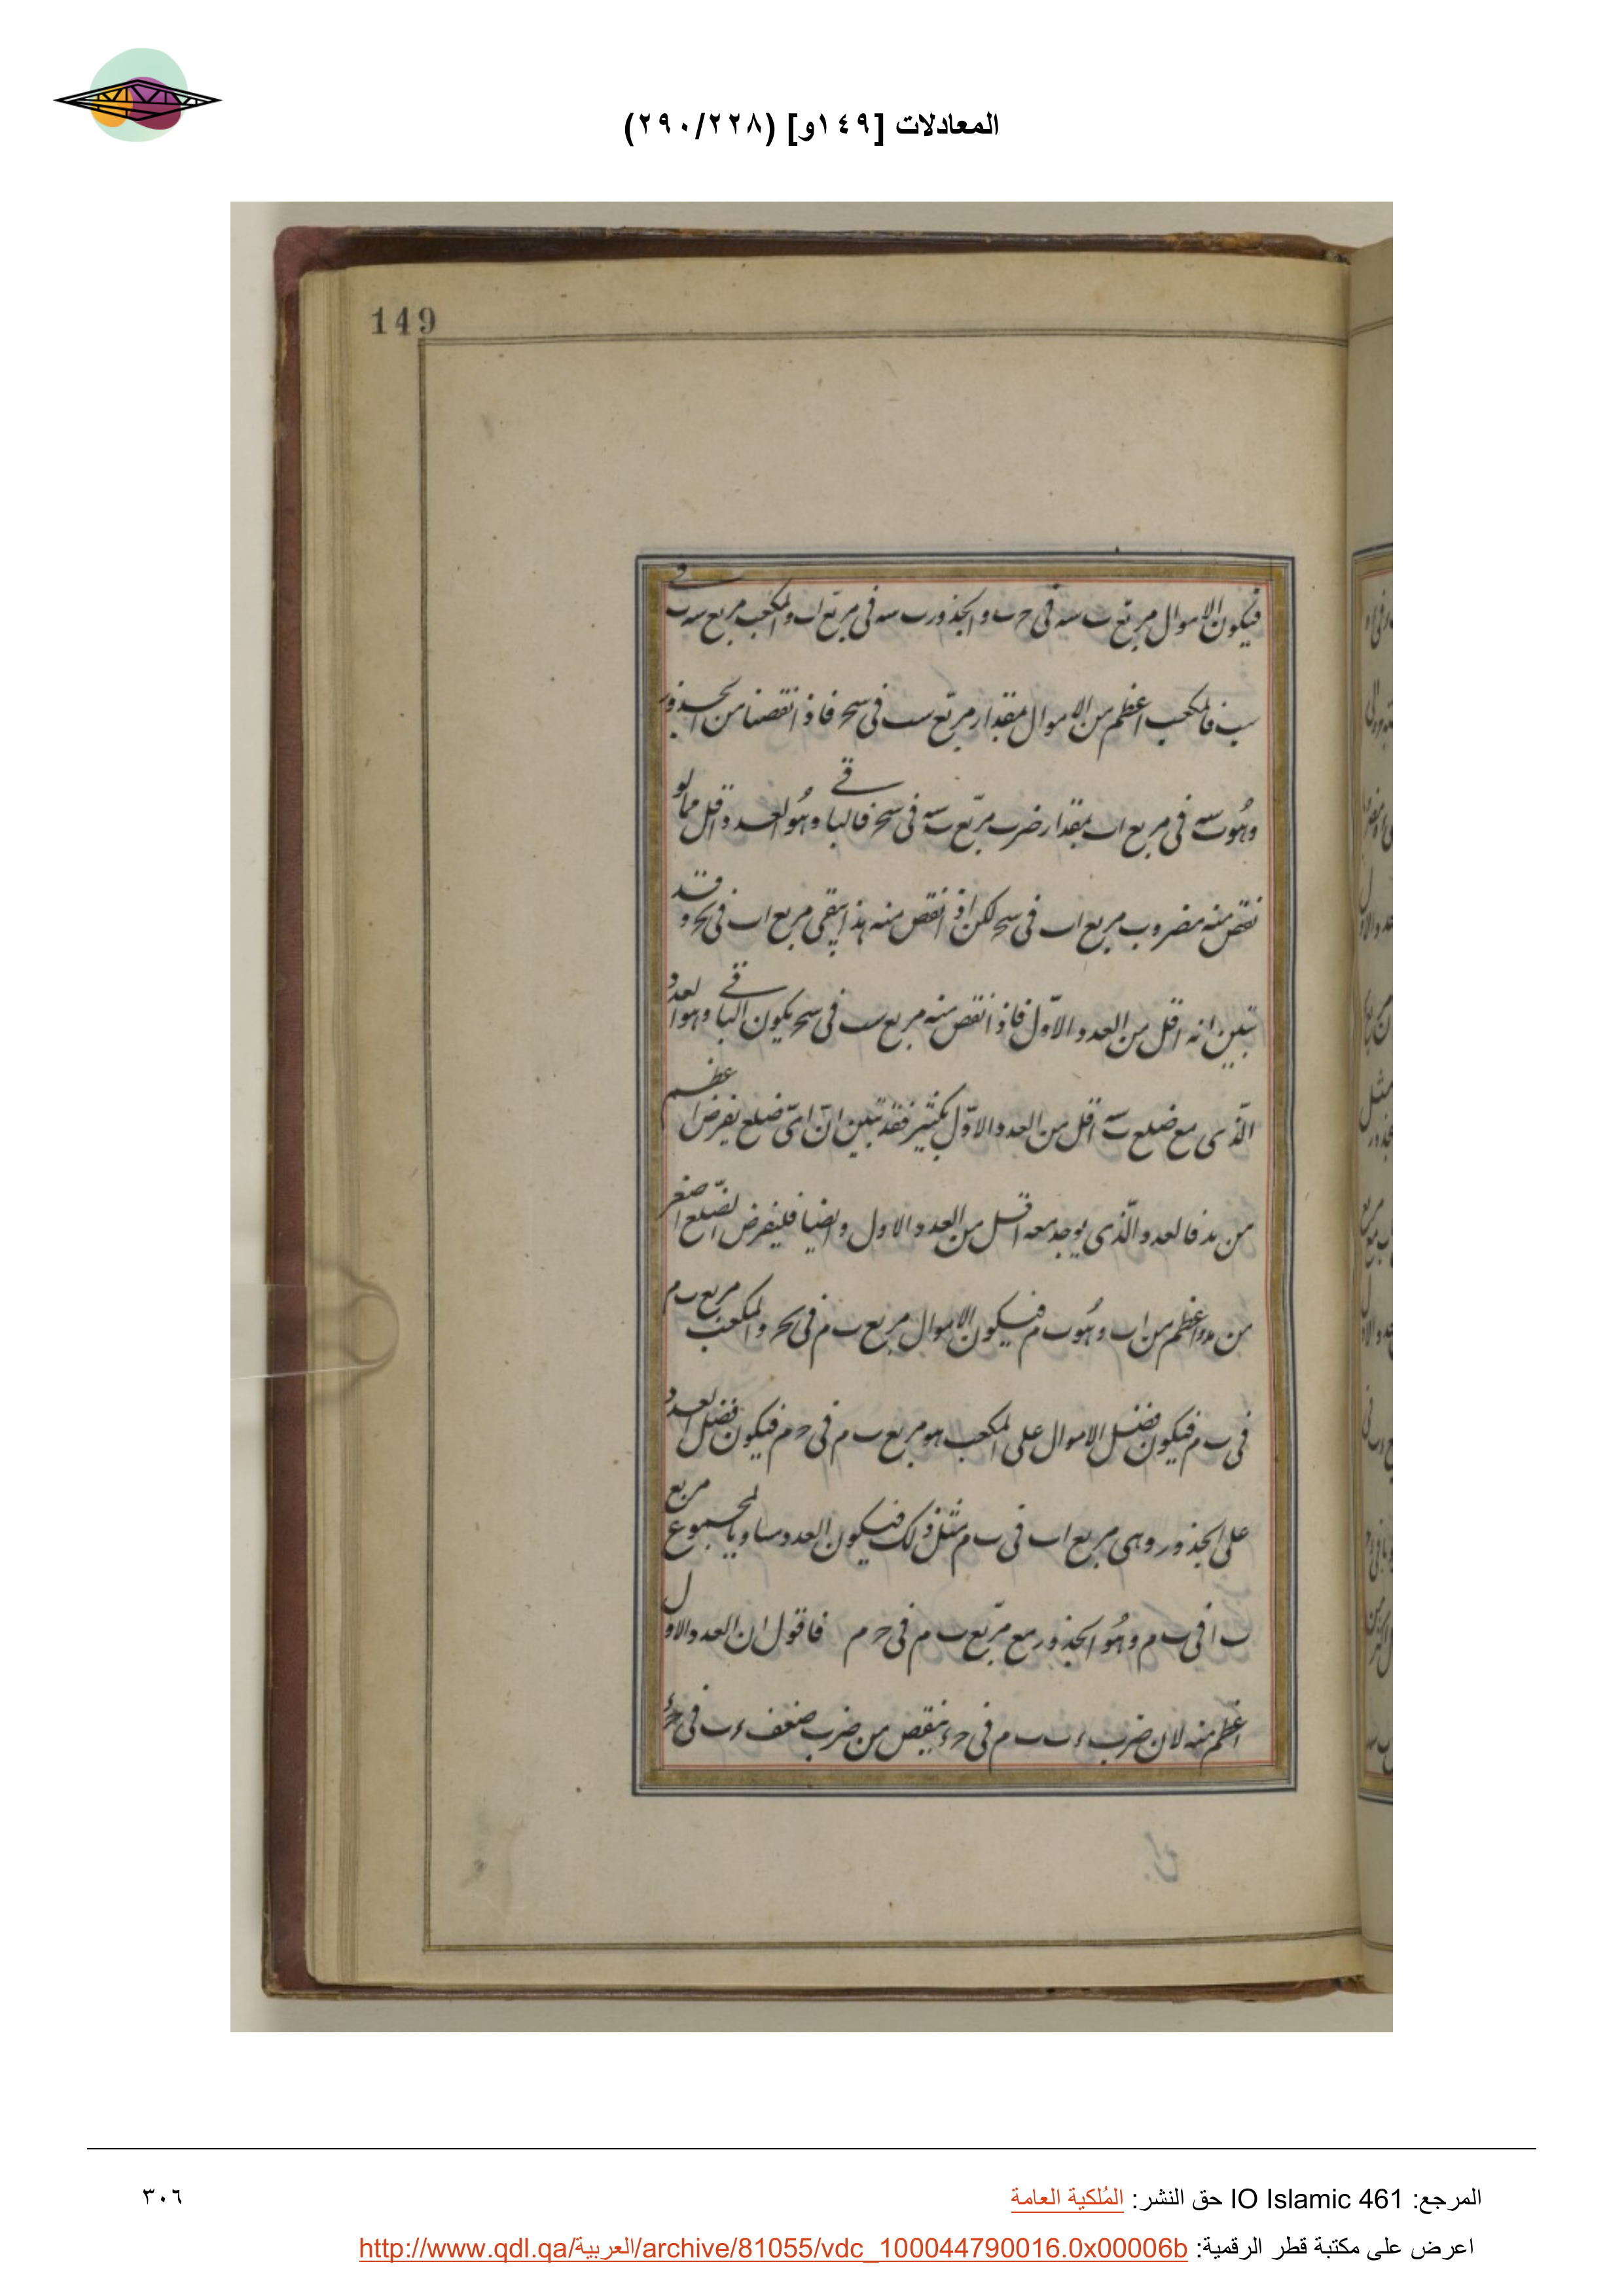 المعادلات [١٤٩و] (٢٩٠/٢٢٨)
149
فيكون الاموال مربع ب سه في ح ب والجذور ب سه في مربع اب والمكعب مربع سه ب في
سب فالمكعب اعظم من الاموال بمقدار مربع سب في سح فاذا نقصنا من الجذور
وهو ب سه في مربع اب بمقدار ضرب مربع ب سه في سح فالباقي وهو العدد اقل مما لو
نقص منه مضروب مربع اب في سح لكن اذا نقص منه هذا يبقى مربع اب في بح وقد
تبين انه اقل من العدد الاول فاذا نقص منه مربع سب في سح يكون الباقي وهو العدد
الذى مع ضلع ب سه اقل من العدد الاول بكثير فقد تبين ان اى ضلع يفرض اعظم
من بد فالعدد الذى يوجد معه اقل من العدد الاول وايضا فليفرض الضلع اصغر
من بد واعظم من اب وهو ب م فيكون الاموال مربع ب م في بح والمكعب مربع ب م
في ب م فيكون فضل الاموال على المكعب هو مربع ب م في ح م فيكون فضل العدد
على الجذور وهى مربع اب في ب م مثل ذلك فيكون العدد مساويا لمجموع مربع
ب ا في ب م وهو الجذور مع مربع ب م في ح م فاقول ان العدد الاول
اعظم منه لان ضرب ء ب ب م في ح ء ينقص من ضرب ضعف ء ب في ح ء
المرجع: IO Islamic 461 حق النشر: المُلكية العامة
٣٠٦
اعرض على مكتبة قطر الرقمية: http://www.qdl.qa/العربية/archive/81055/vdc_100044790016.0x00006b